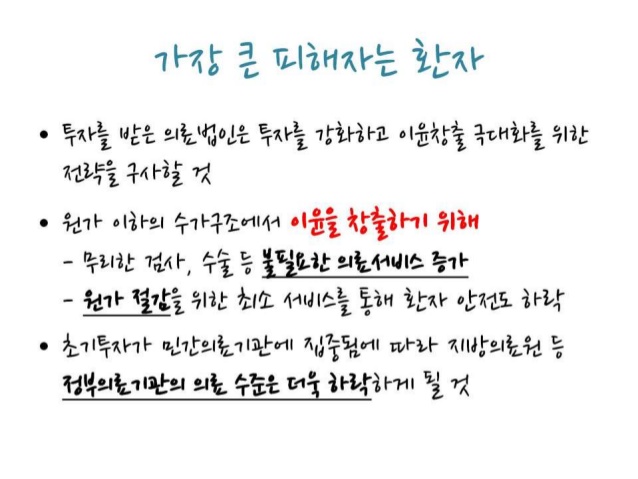 가장 큰 피해자는 환자
• 투자를 받은 의료법인은 투자를 강화하고 이윤창출 극대화를 위한
전략을 구사할 것
• 원가 이하의 수가구조에서 이윤을 창출하기 위해
- 무리한 검사, 수술 등 불필요한 의료서비스 증가
- 원가 절감을 위한 최소 서비스를 통해 환자 안전도 하락
• 초기투자가 민간의료기관에 집중됨에 따라 지방의료원 등
정부의료기관의 의료 수준은 더욱 하락하게 될 것